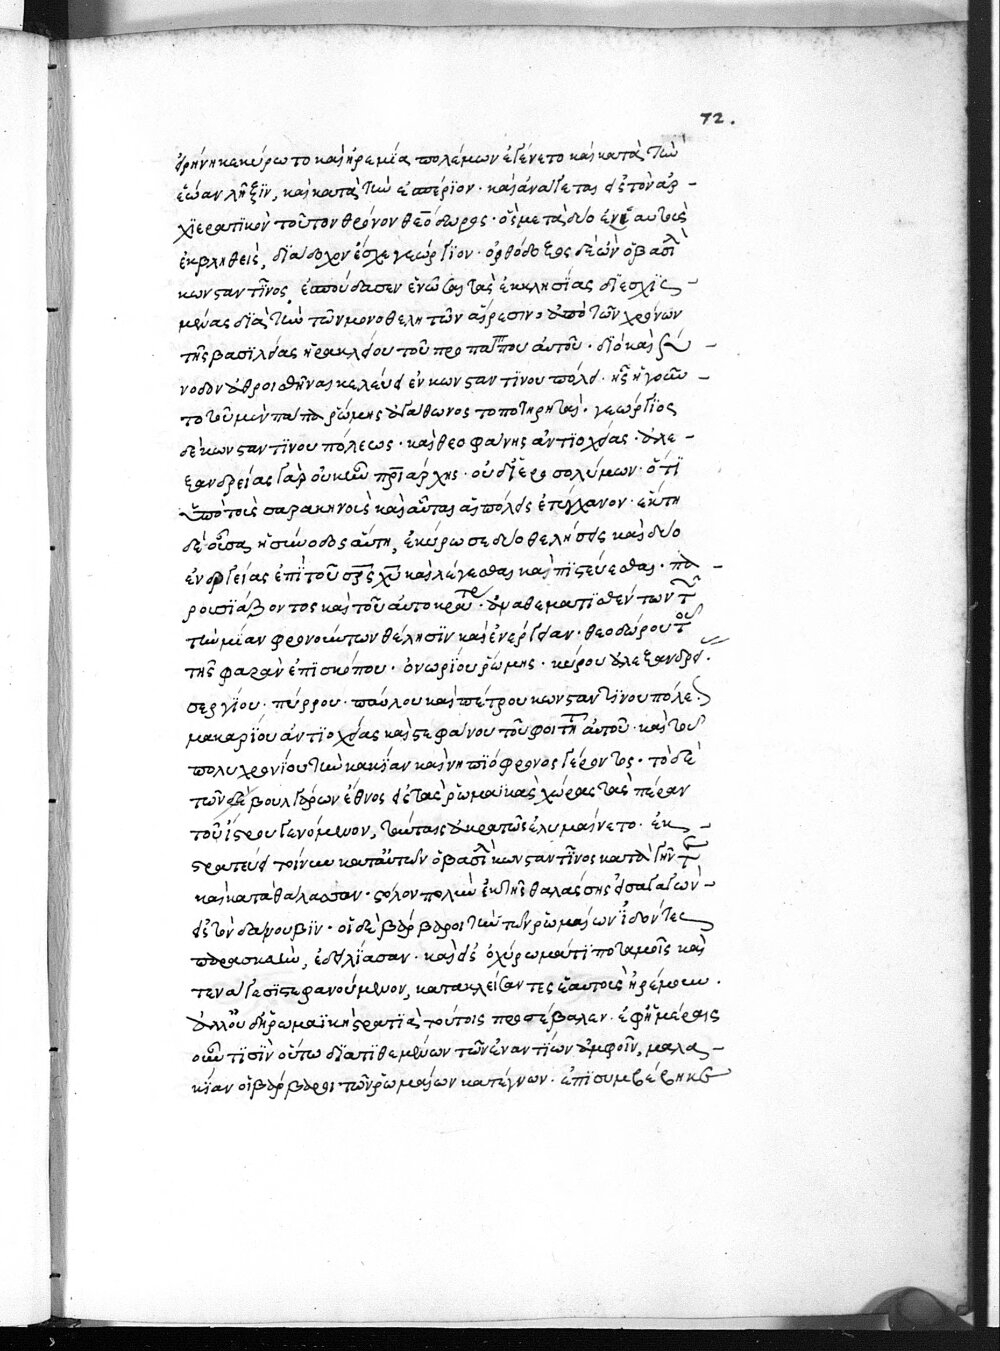 72.
εἰρήνη κεκύρωτο καὶ ἠρεμία πολέμων ἐγένετο καὶ κατὰ τὴν
ἑώαν λῆξϊν, καὶ κατὰ τὴν ἑσπέριον· καὶ ἀνάγεται εἰς τὸν ἀρ-
χϊερατικὸν τοῦτον θρόνον θεόδωρος· ὃς μετὰ δύο ἐνιαυτοὺς
ἐκβληθεὶς, δϊάδοχον ἔσχε γεώργϊον· ὀρθόδοξος δὲ ὢν ὁ βασιλ
κωνσταντῖνος, ἐσπούδασεν ἑνῶσαι τὰς ἐκκλησίας διεσχϊσ-
μένας διὰ τὴν τῶν μονοθελητῶν αἵρεσιν, ἀπὸ τῶν χρόνων
τῆς βασιλείας ἡρακλείου τοῦ προπάππου αὐτοῦ· διὸ καὶ σύ-
νοδον ἀθροισθῆναι κελεύει ἐν κωνσταντϊνουπόλει· ἧς ἡγοῦν-
το τοῦ μὲν πάπα ῥώμης ἀγάθωνος τοποτηρηταὶ· γεώργϊος
δὲ κωνσταντϊνουπόλεως· καὶ θεοφάνης ἀντϊοχείας· ἀλε-
ξανδρείας γὰρ οὐκ ἦν πρϊάρχης· οὐδ' ἱεροσολύμων· ὅτϊ
ὑπὸ τοῖς σαρακηνοῖς καὶ αὗται αἱ πόλεις ἐτύγχανον· ἕκτη
δὲ οὖσα ἡ σύνοδος αὕτη, ἐκύρωσε δύο θελήσεις καὶ δύο
ἐνεργείας ἐπὶ τοῦ σρς χυ καὶ λέγεσθαι καὶ πϊστεύεσθαι· πα-
ρουσϊάζοντος καὶ τοῦ αὐτοκράτορ· ἀναθεματϊσθέντων τ
τὴν μίαν φρονούντων θέλησϊν καὶ ἐνέργειαν· θεοδώρου τοῦ
τῆς φαρὰν ἐπϊσκόπου· ὀνωρίου ῥώμης· κύρου ἀλεξανδρεί.
σεργίου· πύρρου· παύλου καὶ πέτρου κωνσταντϊνουπόλε.
μακαρίου ἀντϊοχείας καὶ στεφάνου τοῦ φοιτητ αὐτοῦ· καὶ τοῦ
πολυχρονίου τὴν κακίαν καὶ νηπϊόφρονος γέροντος· τὸ δὲ
τῶν βουλγάρων ἔθνος εἰς τὰς ῥωμαϊκὰς χώρας τὰς πέραν
τοῦ ἴστρου γενόμενον, ταύταις ἀκρατῶς ἐλυμαίνετο· ἐκ-
στρατεύει τοίνυν κατ' αὐτῶν ὁ βασιλ κωνσταντῖνος κατὰ γῆν τ
καὶ κατὰ θάλασσαν· στόλον πολὺν ἐκ τῆς θαλάσσης εἰσαγαγὼν
εἰς τὸν δάνουβϊν· οἱ δὲ βάρβαροι τὴν τῶν ῥωμαίων ἰδόντες
παρασκευὴν, ἐδειλίασαν· καὶ εἰς ὀχύρωμά τϊ ποταμοῖς καὶ
τενάγεσϊ στεφανούμενον, κατακλείσαντες ἑαυτοὺς ἠρέμουν.
ἀλλ' οὐδ' ἡ ῥωμαϊκὴ στρατϊὰ τούτοις προσέβαλεν· ἐφ' ἡμέραις
οὖν τϊσὶν οὕτω δϊατϊθεμένων τῶν ἐναντίων ἀμφοῖν, μαλα-
κίαν οἱ βάρβαροι τῶν ῥωμαίων κατέγνων· ἐπισυμβέβηκε